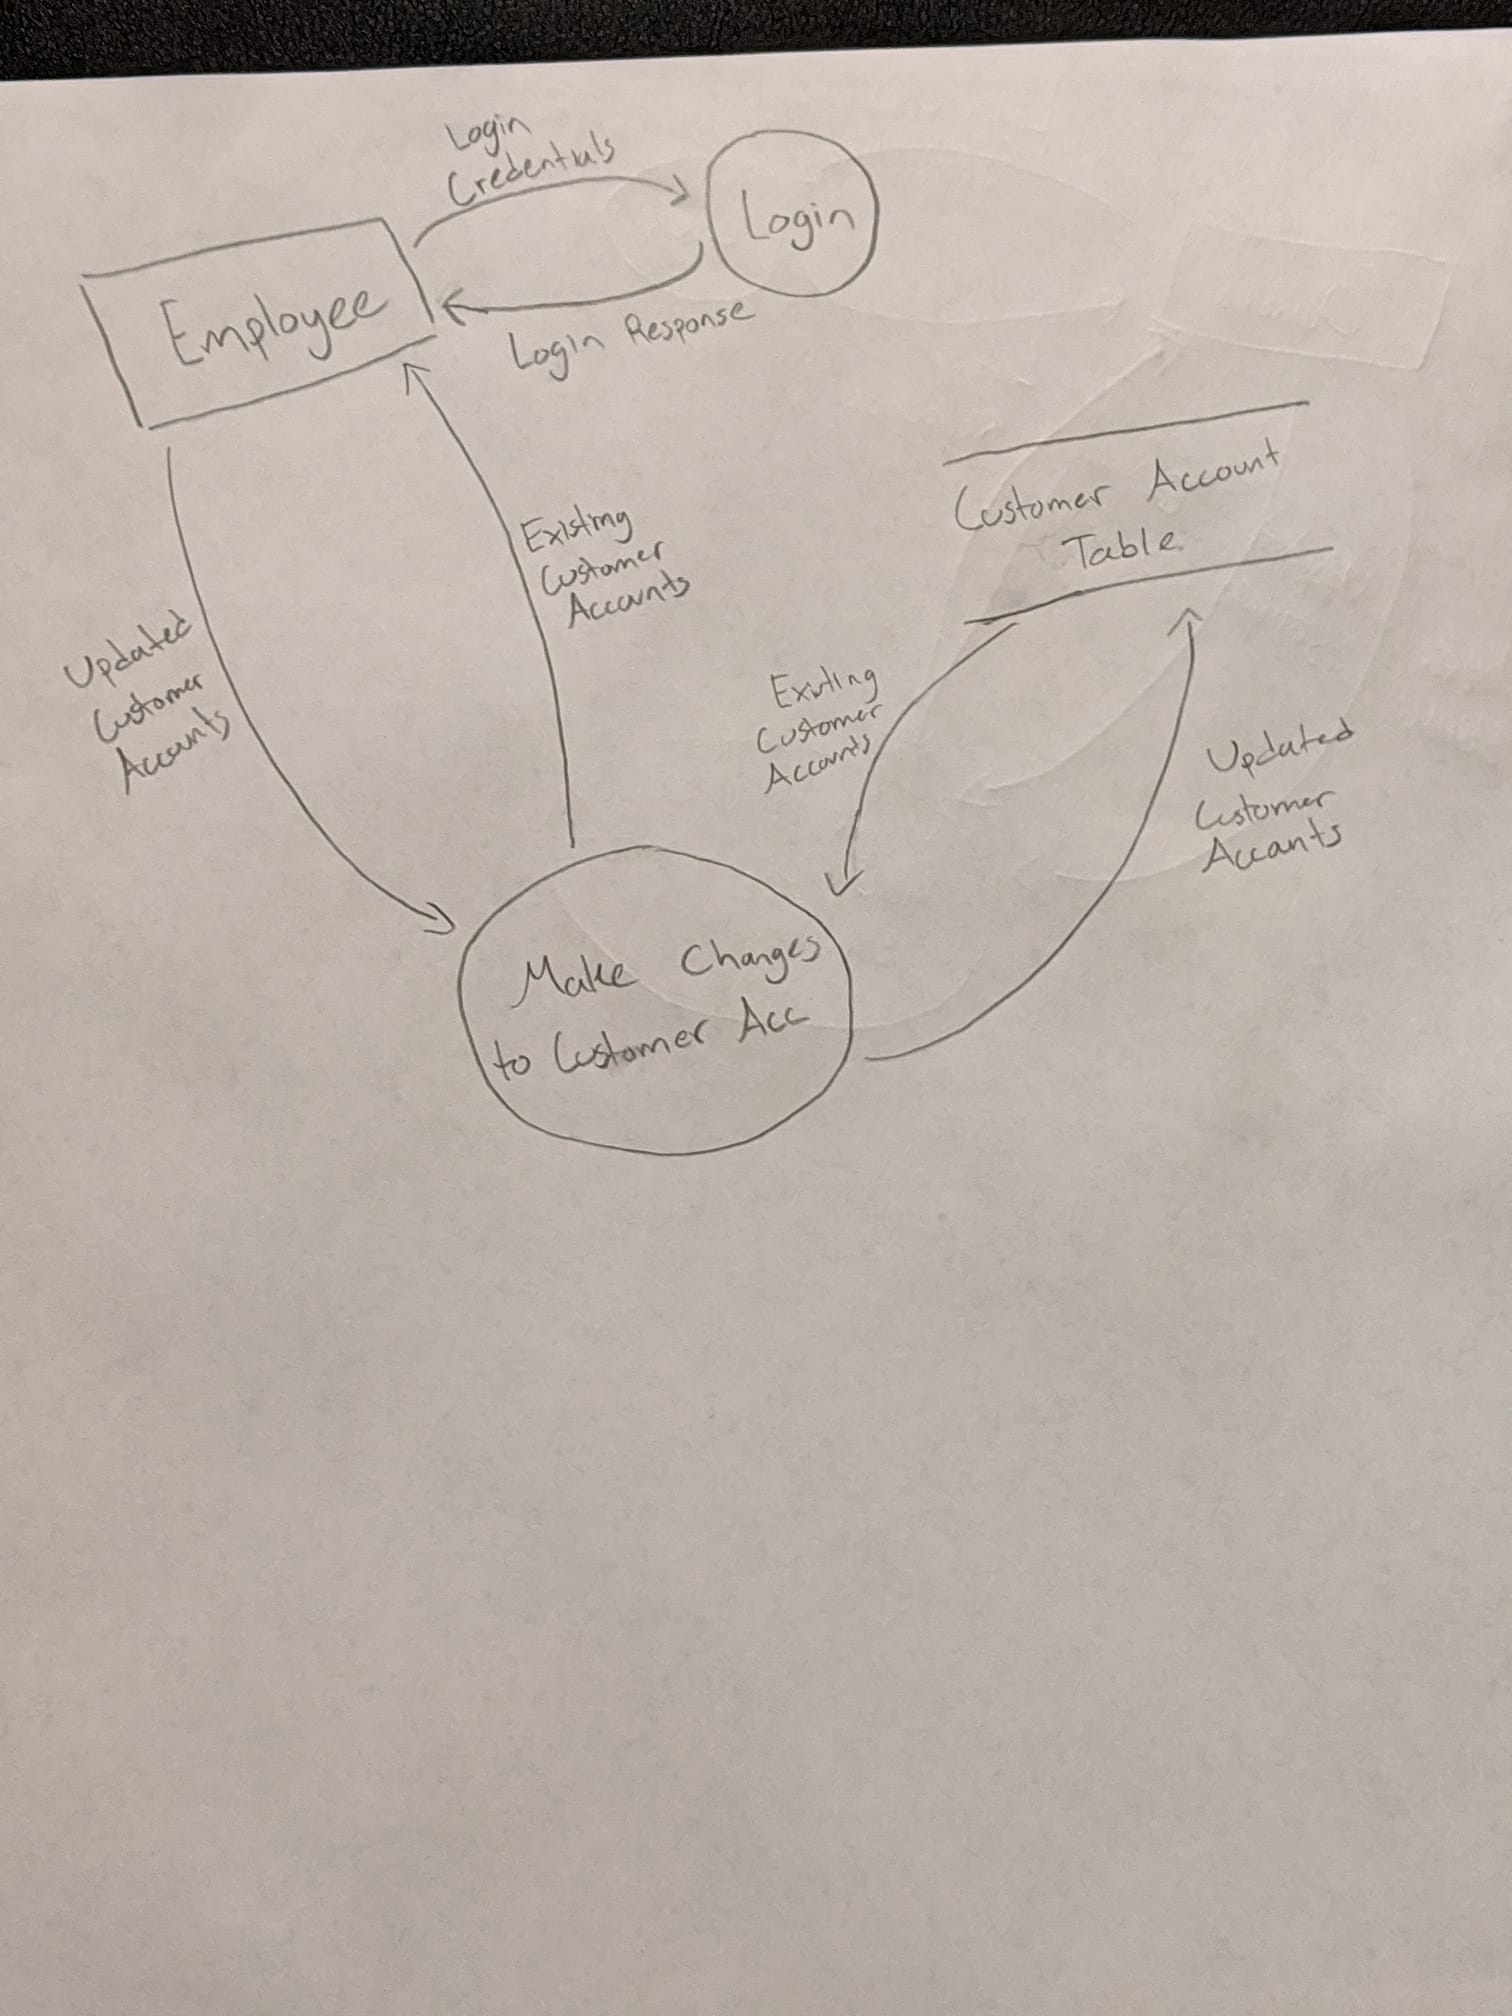 Login
Credentials
Login
Employee
Login Response
Customer Account
Table
Existing
Customer
Accounts
Updated
Customer
Accounts
Existing
Customer
Accounts
Updated
Customer
Accounts
Make Changes
to Customer Acc